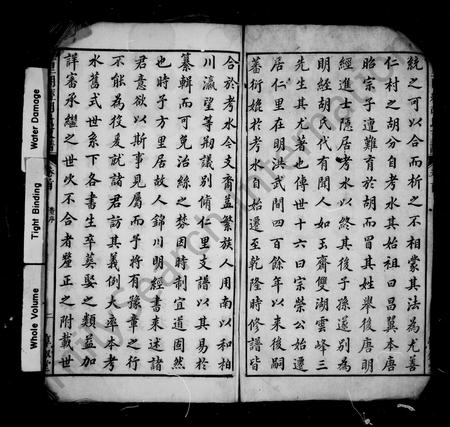 統之可以合而析之不相蒙其法為尤善
仁村之胡分自考水其始祖曰昌翼本唐
昭宗子遭難育於胡而冒其姓舉後唐明
經進士隱居考水以終其後子孫遂別為
明經胡氏代有聞人如玉齋雙湖雲峰三
先生其尤著也傳世十六曰宗榮公始遷
居仁里在明洪武間四百餘年以來後嗣
蕃衍應於考水自始遷至乾隆時修譜皆
合於考水今文齋藎繁族人用南以和柏
川瀛望等剏議別脩仁里支譜以其易於
纂輯而可免治絲之棼因時制宜道固然
也時予方里居故人錦川明經書來述諸
君意欲以斯事見屬而予將有豫章之行
不能為役爰就諸君訪其義例大率本考
水舊式世系下各書生卒葬娶之類益加
詳審承繼之世次不合者釐正之附載世
卷首
Whole Volume
Tight Binding
Water Damage